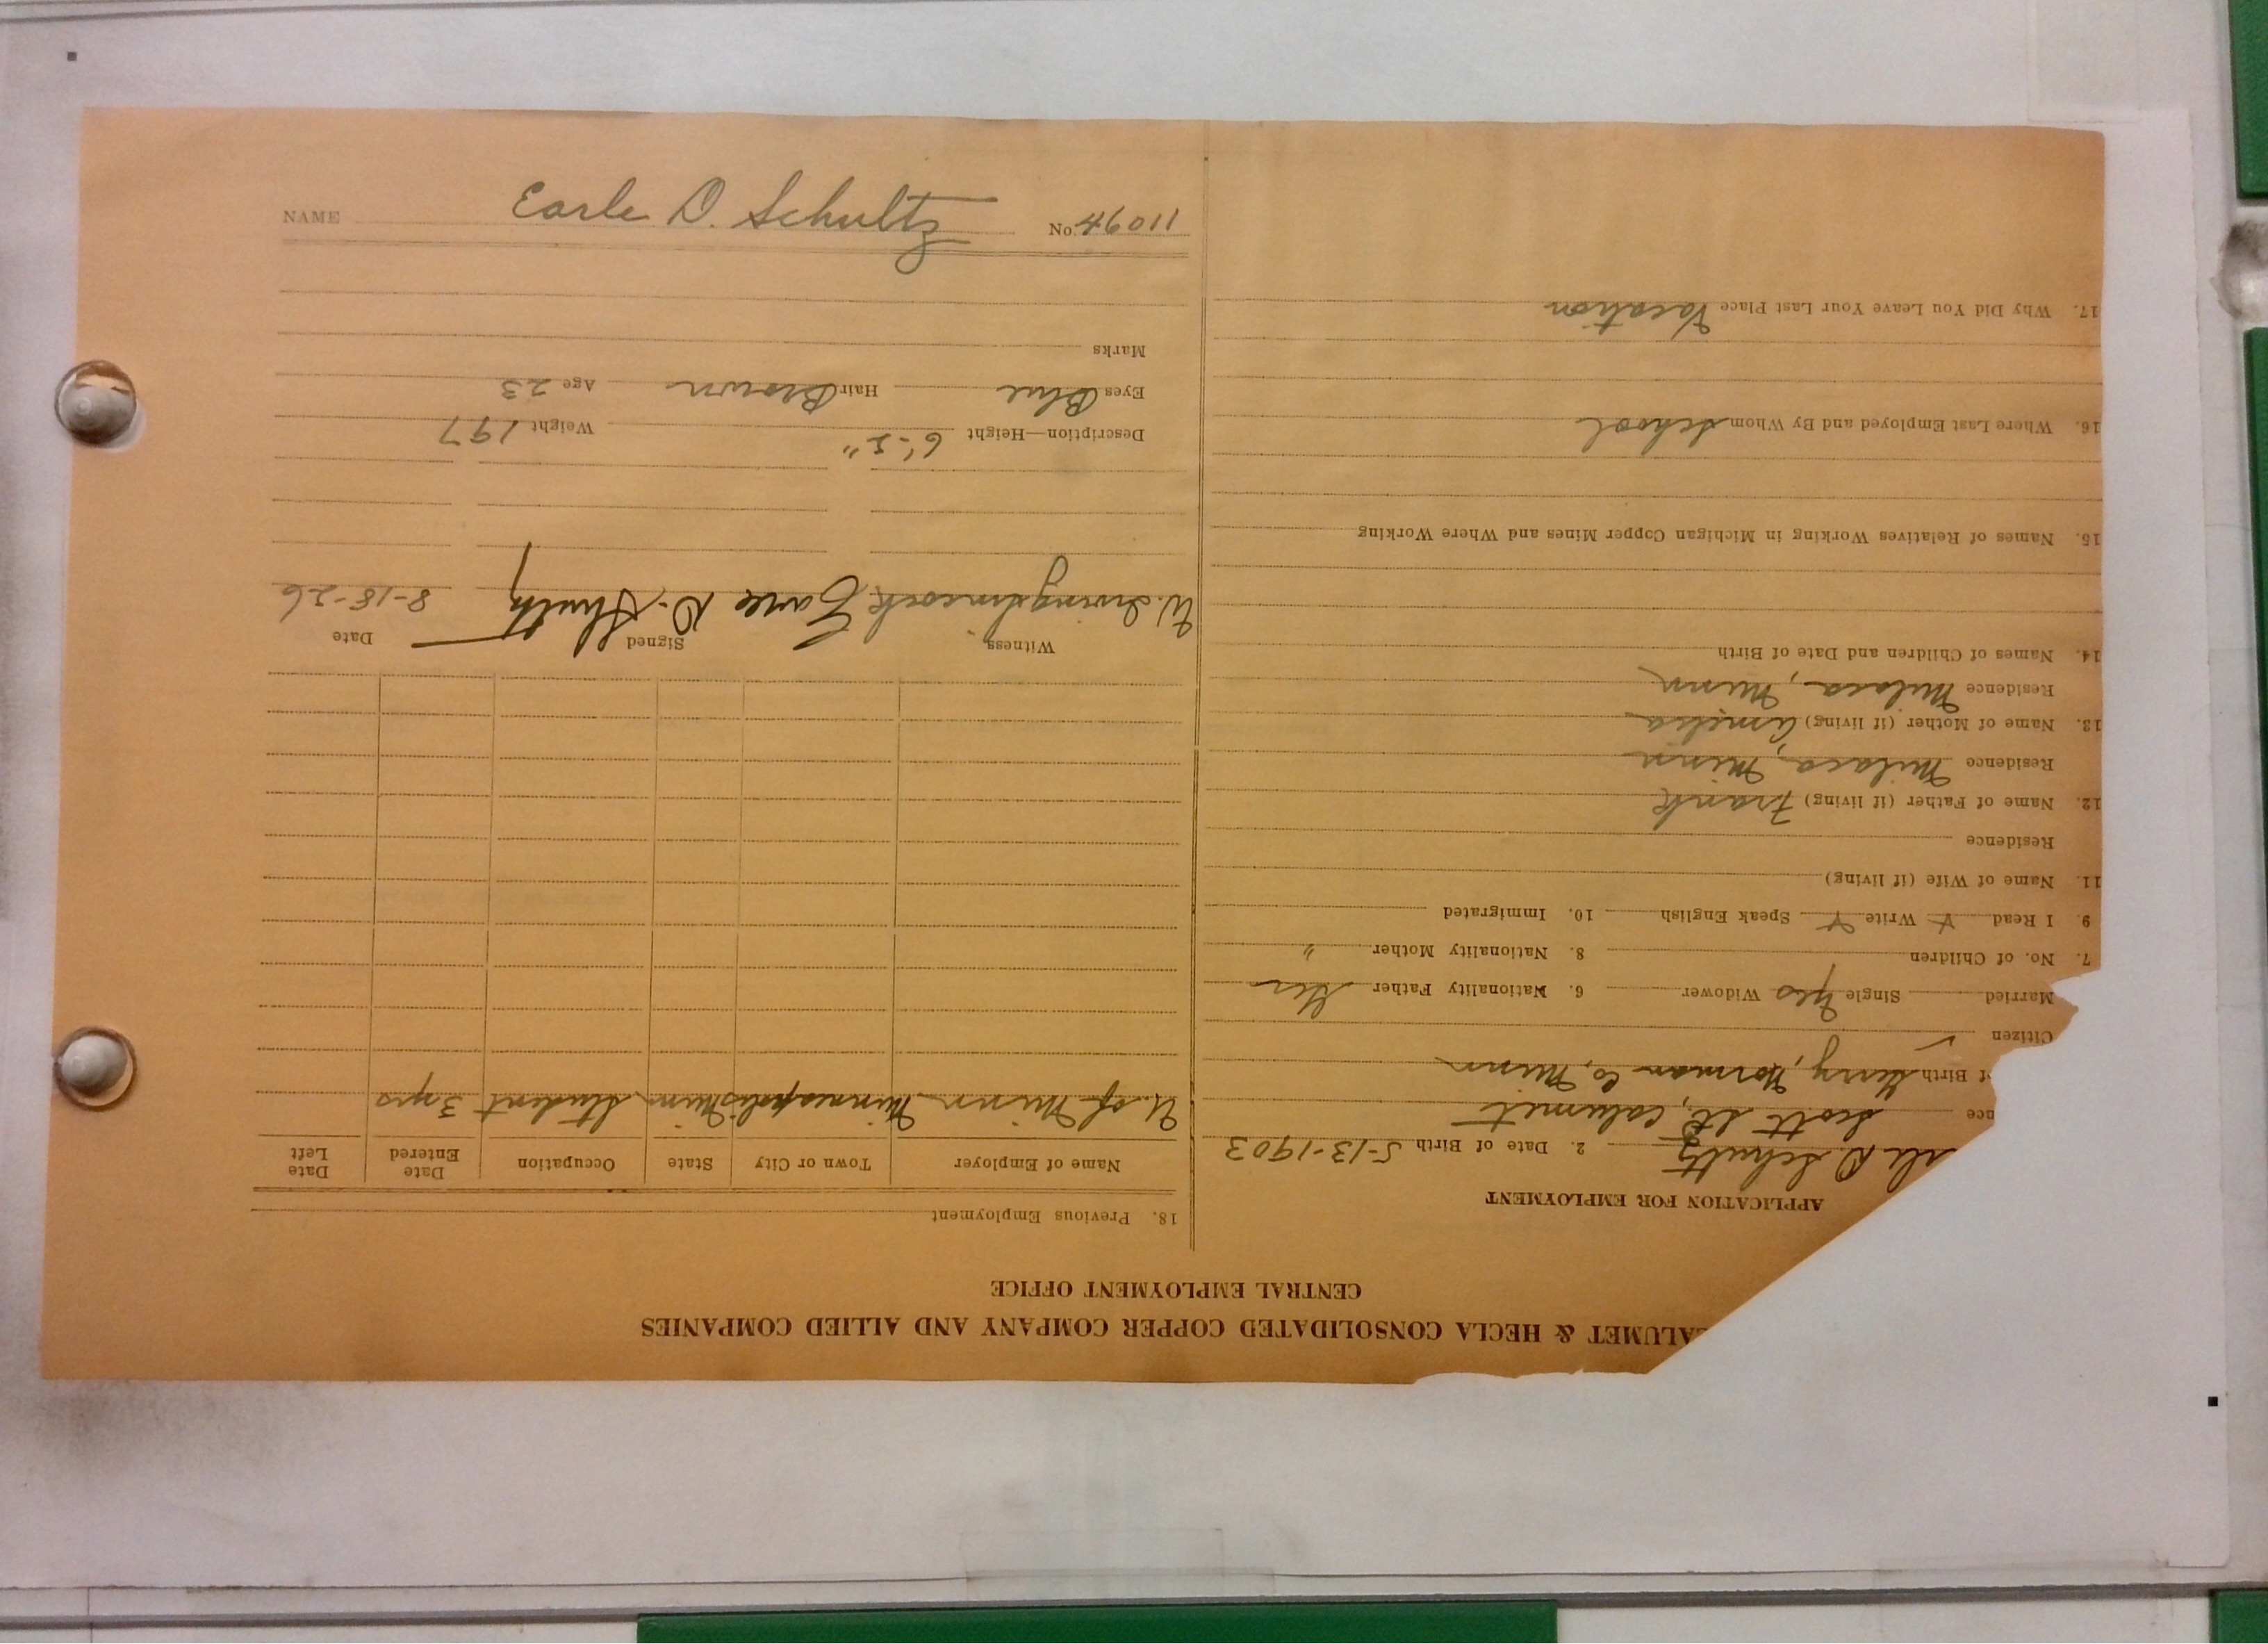 ALUMET & HECLA CONSOLIDATED COPPER COMPANY AND ALLIED COMPANIES
CENTRAL EMPLOYMENT OFFICE
APPLICATION FOR EMPLOYMENT
rle D. Schultz 2. Date of Birth 5-13-1903
nce Scott St, Calumet
f Birth Norman Co, Minn
Citizen ✓
Married Single Yes Widower 6. Nationality Father Ger
7. No. of Children 8. Nationality Mother "
9. I Read Y Write Y Speak English 10. Immigrated
11. Name of Wife (if living)
Residence
12. Name of Father (if living) Frank
Residence Milaca, Minn
13. Name of Mother (if living) Amelia
Residence Milaca, Minn
14. Names of Children and Date of Birth
15. Names of Relatives Working in Michigan Copper Mines and Where Working
16. Where Last Employed and By Whom School
17. Why Did You Leave Your Last Place Vacation
18. Previous Employment
Name of Employer Town or City State Occupation Date Entered Date Left
U. of Minn Minneapolis Minn Student 3 yrs
Witness Signed Date
W. Earle D. Shultz 8-18-26
Description—Height 6'-2" Weight 197
Eyes Blue Hair Brown Age 23
Marks
NAME Earle D. Schultz No. 11094